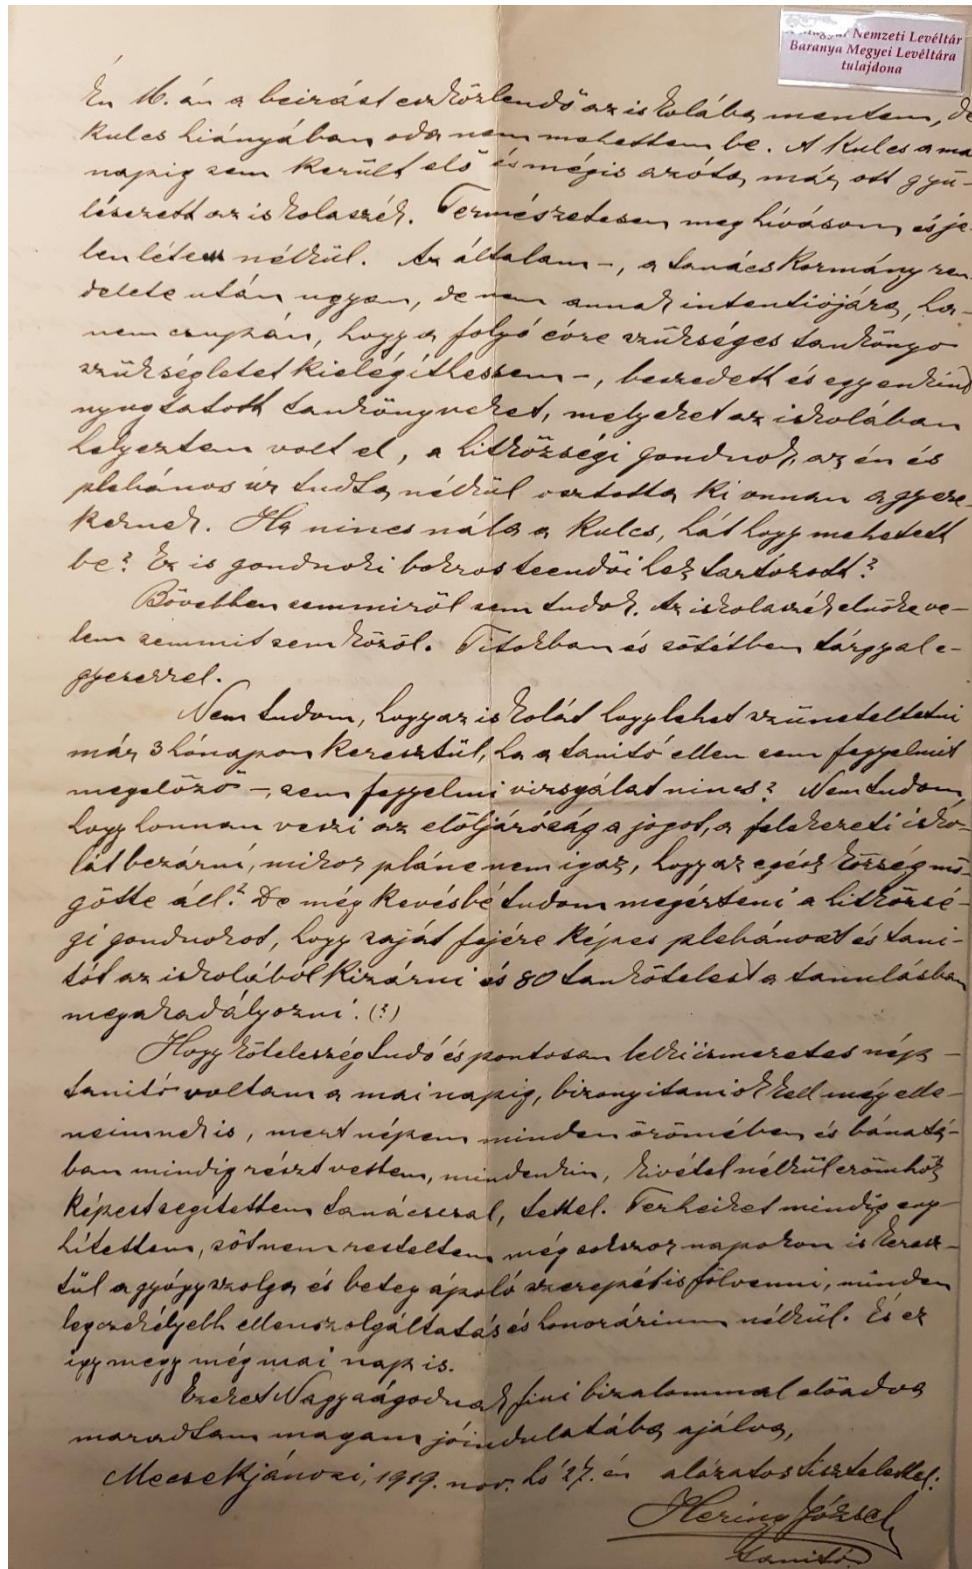 Magyar Nemzeti Levéltár
Baranya Megyei Levéltára
tulajdona
Én 16.án a beirást eszközlendő az iskolába mentem, de
kulcs hiányában oda nem mehettem be. A kulcs a mai
napig sem került elő és mégis azóta már ott gyü-
lésezett az iskolaszék. Természetesen meghívásom és je-
lenlétem nélkül. Az általam –, a tanácskormány ren-
delete után ugyan, de nem annak intentiójára, ha-
nem csupán, hogy a folyó évre szükséges tankönyv
szükségletet kielégíthessem –, beszedett és egyenkint
nyugtatott tankönyveket, melyeket az iskolában
helyeztem volt el, a hitközségi gondnok, az én és
plebános úr tudta nélkül osztotta ki onnan a gyere-
keknek. Ha nincs nála a kulcs, hát hogy mehetett
be? Ez is gondnoki bokros teendőihez tartozott?
Bővebben semmiről sem tudok. Az iskolaszék elnöke ve-
lem semmit sem közöl. Titokban és sötétben tárgyal e-
gyesekkel.
Nem tudom, hogy az iskolát hogy lehet szüneteltetni
már 3 hónapon keresztül, ha a tanitó ellen sem fegyelmit
megelőző –, sem fegyelmi vizsgálat nincs? Nem tudom,
hogy honnan veszi az elöljáróság a jogot, a felekezeti isko-
lát bezárni, mikor pláne nem igaz, hogy az egész község mö-
götte áll? De még kevésbé tudom megérteni a hitközsé-
gi gondnokot, hogy saját fejére képes plebánost és tani-
tót az iskolából kizárni és 80 tankötelest a tanulásban
megakadályozni. (?)
Hogy kötelességtudó és pontosan lelkiismeretes nép-
tanitó voltam a mai napig, bizonyitaniok kell még elle-
neimnek is, mert népem minden örömében és bánatá-
ban mindig részt vettem, mindenkin, kivétel nélkül erőmhöz
képest segítettem tanácscsal, tettel. Terheiket mindig eny-
hítettem, sőt nem resteltem még sokszor napokon is keresz-
tül a gyógyszolga és betegápoló szerepét is fölvenni, minden
legcsekélyebb ellenszolgáltatás és honorárium nélkül. És ez
igy megy még mai nap is.
Ezeket Nagyságodnak fiui bizalommal előadva
maradtam magam jóindulatába ajálva,
Mecsekjánosi, 1919. nov. hó 27. én alázatos tisztelettel:
Hering József
tanító